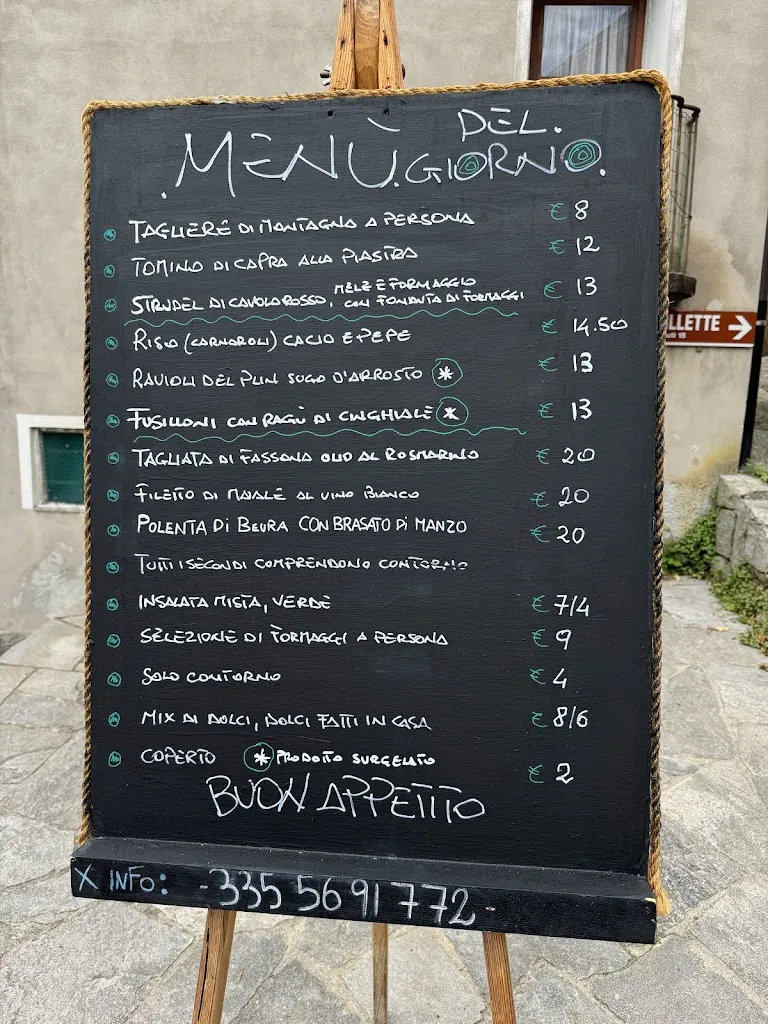 MENÙ DEL.
GIORNO.
TAGLIERE DI MONTAGNA A PERSONA € 8
TOMINO DI CAPRA ALLA PIASTRA € 12
STRUDEL DI CAVOLO ROSSO, MELE E FORMAGGIO € 13
CON FONDUTA DI FORMAGGI
RISO (CARNAROLI) CACIO E PEPE € 14.50
RAVIOLI DEL PLIN SUGO D'ARROSTO * € 13
FUSILLONI CON RAGÙ DI CINGHIALE * € 13
TAGLIATA DI FASSONA OLIO AL ROSMARINO € 20
FILETTO DI MAIALE AL VINO BIANCO € 20
POLENTA DI BEURA CON BRASATO DI MANZO € 20
TUTTI I SECONDI COMPRENDONO CONTORNO
INSALATA MISTA, VERDE € 7/4
SELEZIONE DI FORMAGGI A PERSONA € 9
SOLO CONTORNO € 4
MIX DI DOLCI, DOLCI FATTI IN CASA € 8/6
COPERTO * PRODOTTO SURGELATO € 2
BUON APPETITO
X INFO: - 335 5691772 -
LLETTE